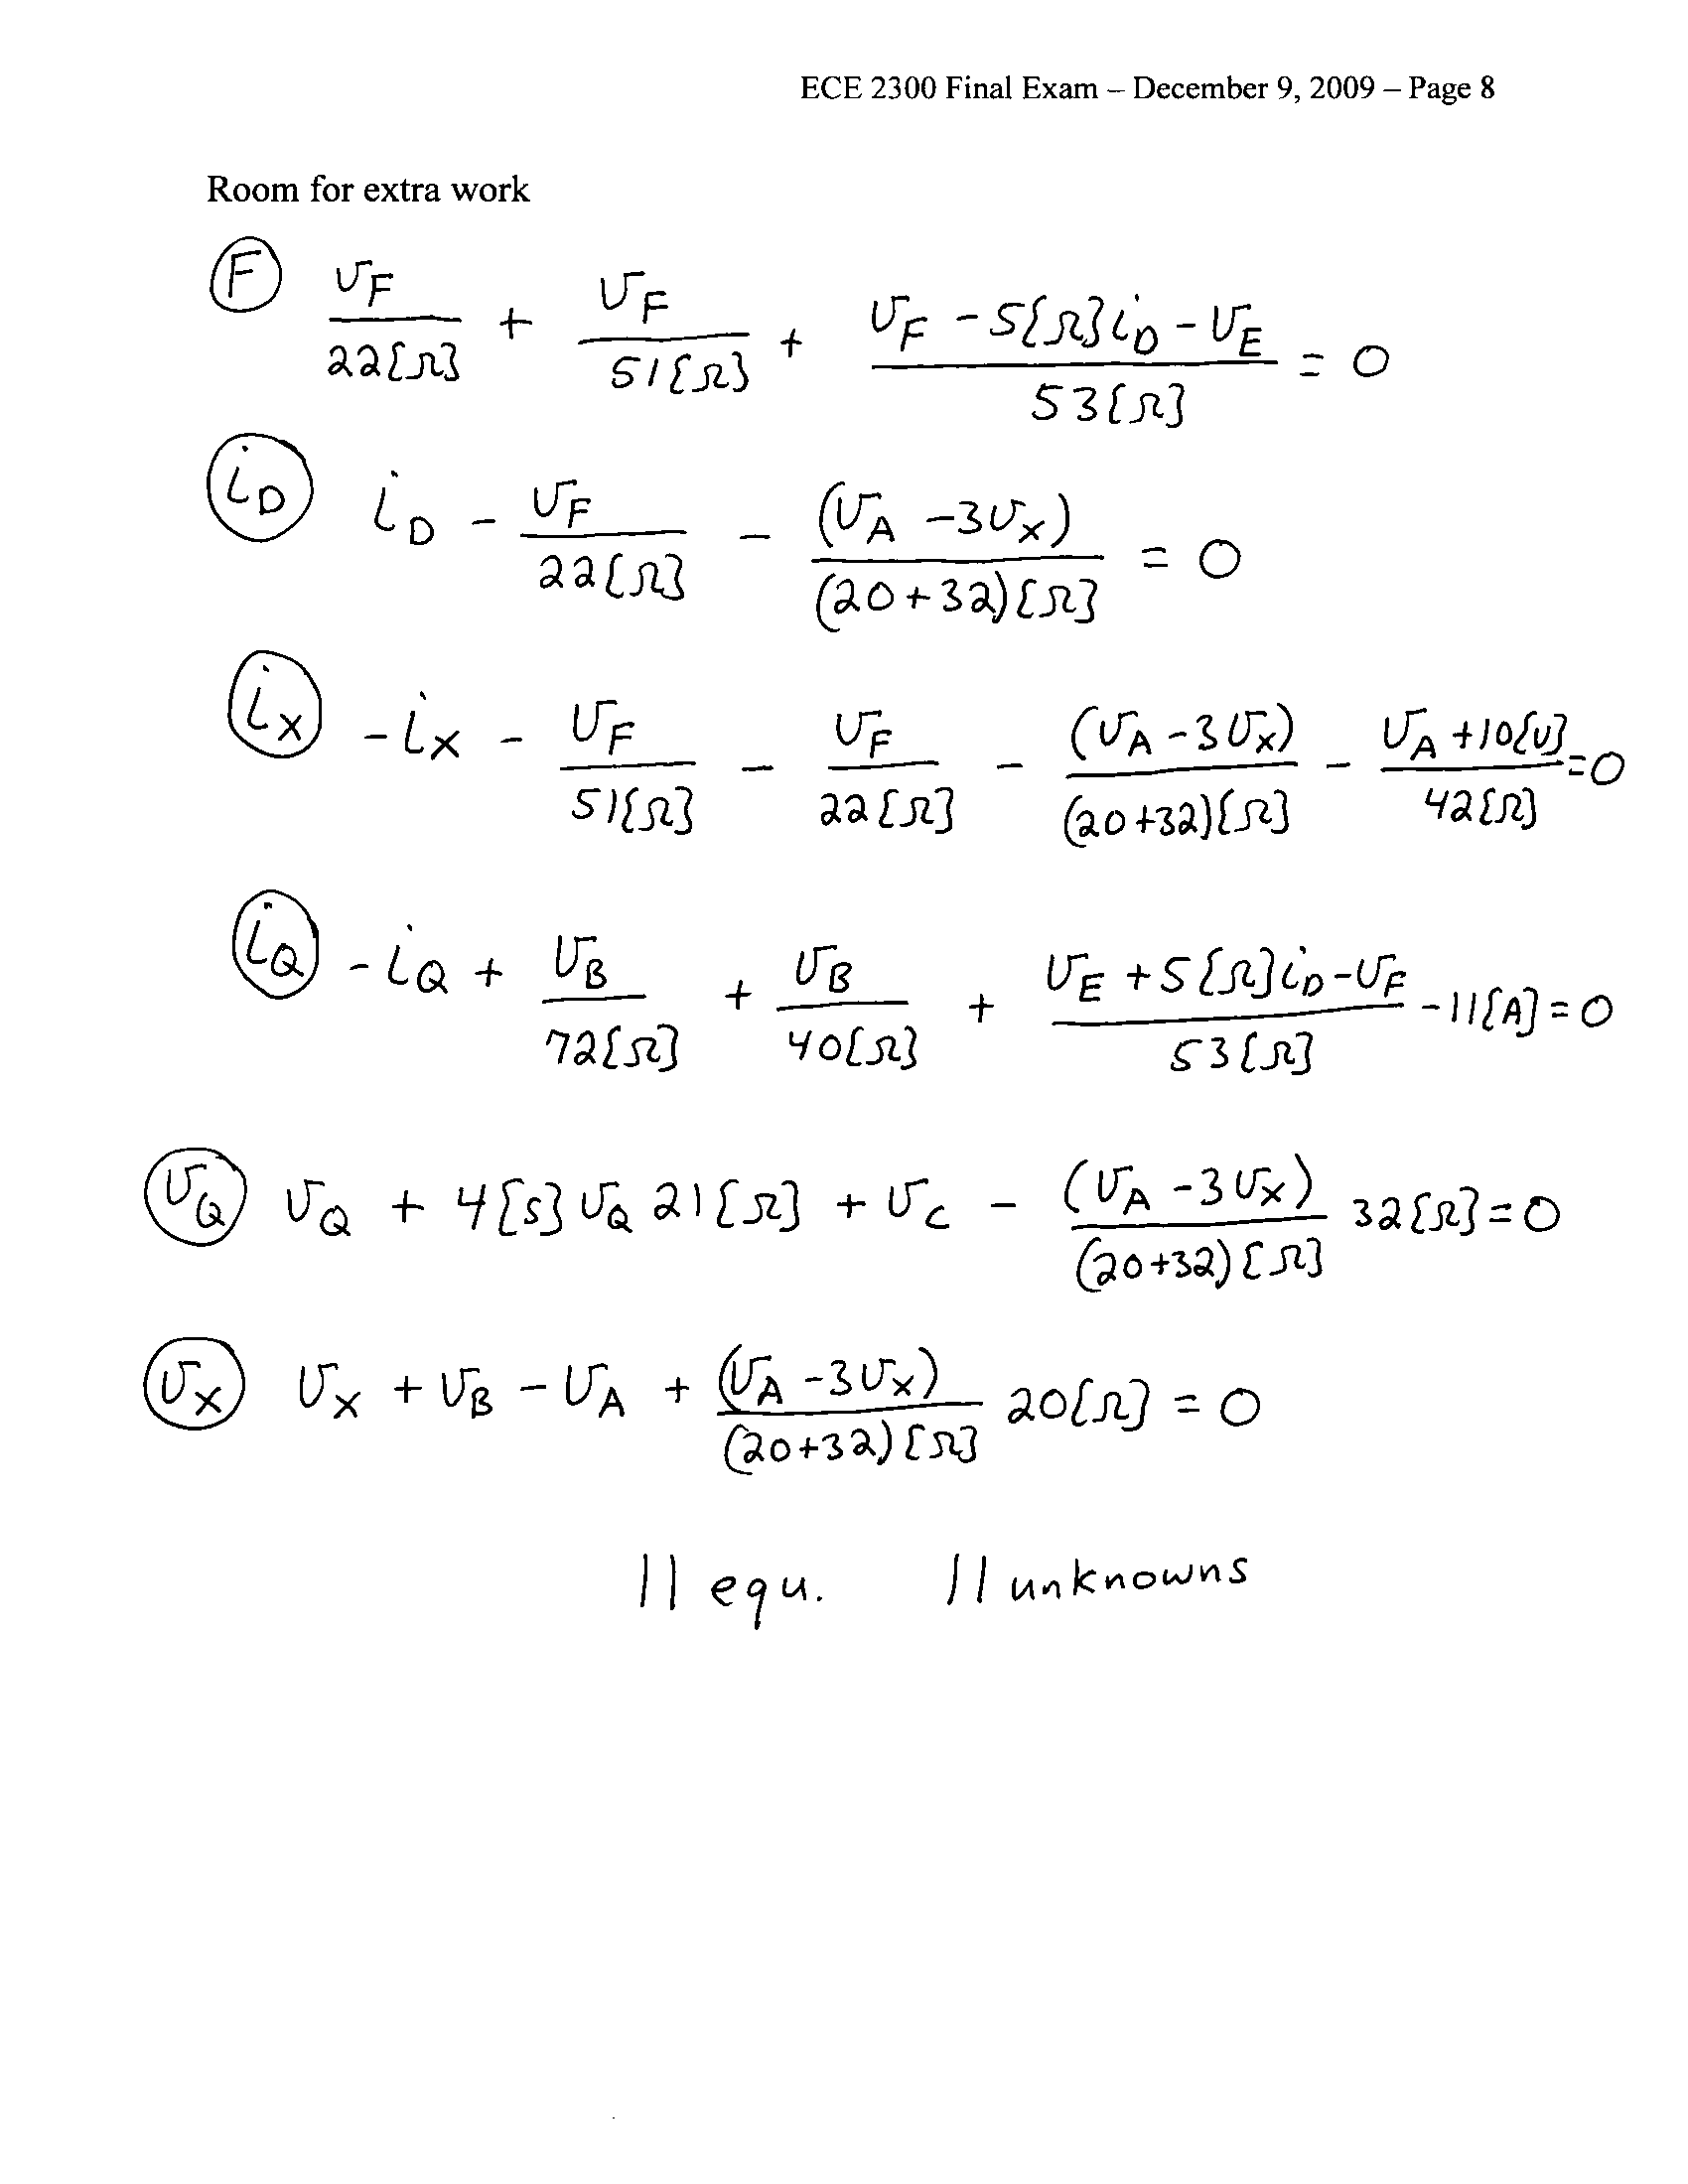 ECE 2300 Final Exam – December 9, 2009 – Page 8
Room for extra work
(F) v_F/22[Ω] + v_F/51[Ω] + (v_F - 5[Ω]i_D - v_E)/53[Ω] = 0
(i_D) i_D - v_F/22[Ω] - (v_A - 3v_X)/(20+32)[Ω] = 0
(i_X) -i_X - v_F/51[Ω] - v_F/22[Ω] - (v_A - 3v_X)/(20+32)[Ω] - (v_A + 10[V])/42[Ω] = 0
(i_Q) -i_Q + v_B/72[Ω] + v_B/40[Ω] + (v_E + 5[Ω]i_D - v_F)/53[Ω] - 11[A] = 0
(v_Q) v_Q + 4[S]v_Q 21[Ω] + v_C - (v_A - 3v_X)/(20+32)[Ω] 32[Ω] = 0
(v_X) v_X + v_B - v_A + (v_A - 3v_X)/(20+32)[Ω] 20[Ω] = 0
11 equ. 11 unknowns